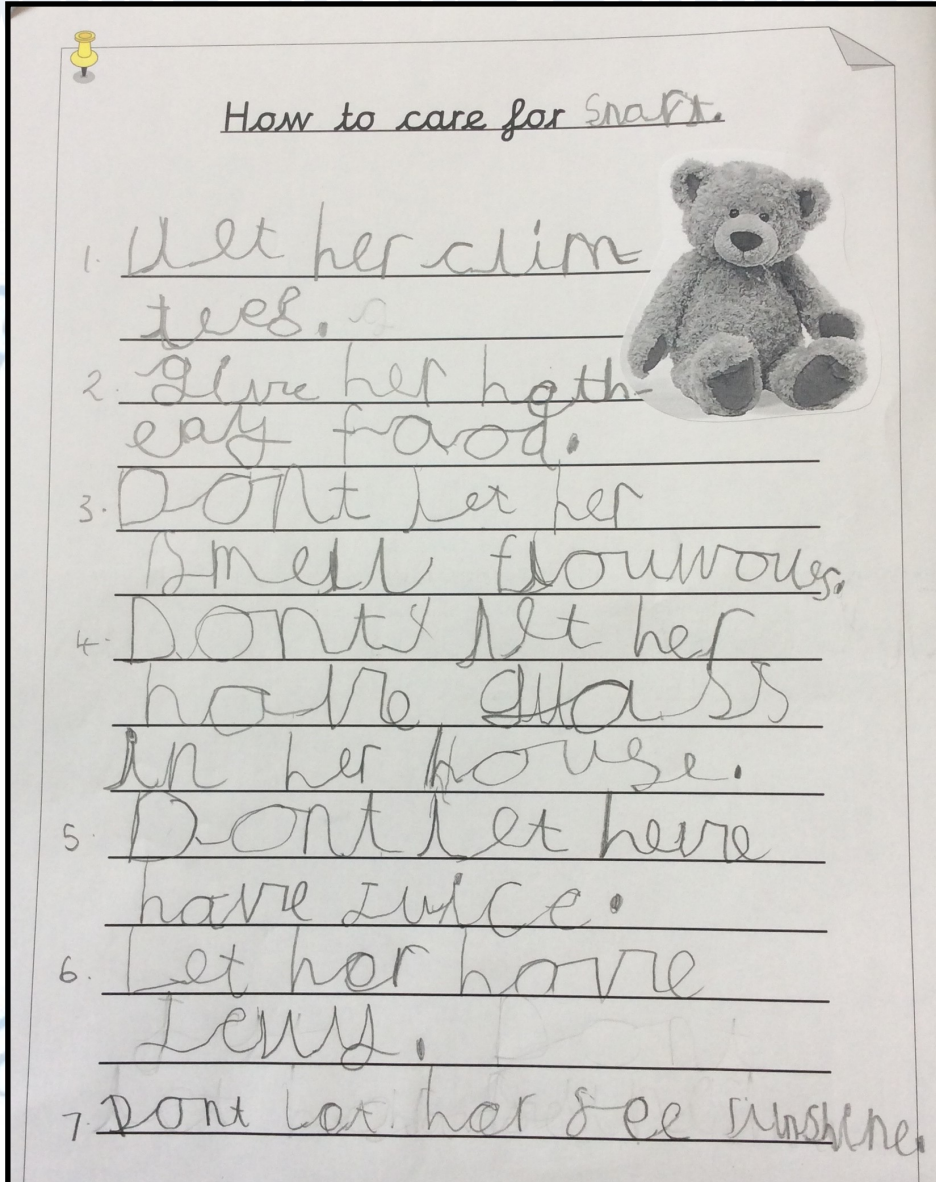 How to care for Snart.
1. Ulet her clim
trees.
2. give her hoth-
eay faood.
3. Dont let her
smell flouwoues.
4. Dont let her
have glass
in her house.
5. Dont let heire
have Juice.
6. Let her have
Jelly.
7. Dont Let her see sunshine.